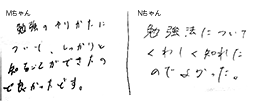 Mちゃん
勉強のやりかたに
ついて、しっかりと
知ることができたの
で良かったです。
Nちゃん
勉強法について
くわしく知れた
のでよかった。